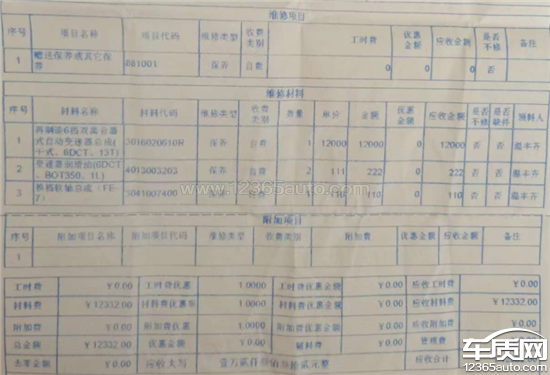 维修项目
序号 项目名称 项目代码 维修类型 收费类别 工时费 优惠金额 应收金额 是否不修 备注
1 赠送保养或其它保养 881001 保养 自费 0 0 0 否
维修材料
序号 材料名称 材料代码 维修类型 收费类别 数量 单价 金额 优惠金额 应收金额 是否不修 是否缺件 领料人
1 再制造6挡双离合器式自动变速器总成( 6DCT、13T) 3016020610R 保养 自费 1 12000 12000 0 12000 否 否 温丰齐
2 变速器润滑油(6DCT、BOT350、1L) 4013003203 保养 自费 2 111 222 0 222 否 否 温丰齐
3 换档软轴总成(FE-7) 3041007400 保养 自费 1 110 110 0 110 否 否 温丰齐
www.12365auto.com
附加项目
序号 附加项目名称 附加项目代码 维修类型 收费类别 附加费 优惠金额 应收金额 备注
1
工时费 ￥0.00 工时费优惠 1.0000 工时费优惠金额 ￥0.00 应收工时费 ￥0.00
材料费 ￥12332.00 材料费优惠率 1.0000 材料费优惠金额 ￥0.00 应收材料费 ￥12332.00
附加费 ￥0.00 附加费优惠 1.0000 附加费优惠金额 ￥0.00 应收附加费 ￥0.00
总金额 ￥12332.00 优惠金额 ￥0.00 辅料费 ￥0.00 管理费 ￥0.00
去零金额 ￥0.00 应收大写 壹万贰仟叁佰叁拾贰元整 应收合计
车质网
12365auto.com